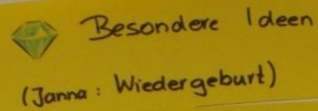 Besondere Ideen
(Janna: Wiedergeburt)